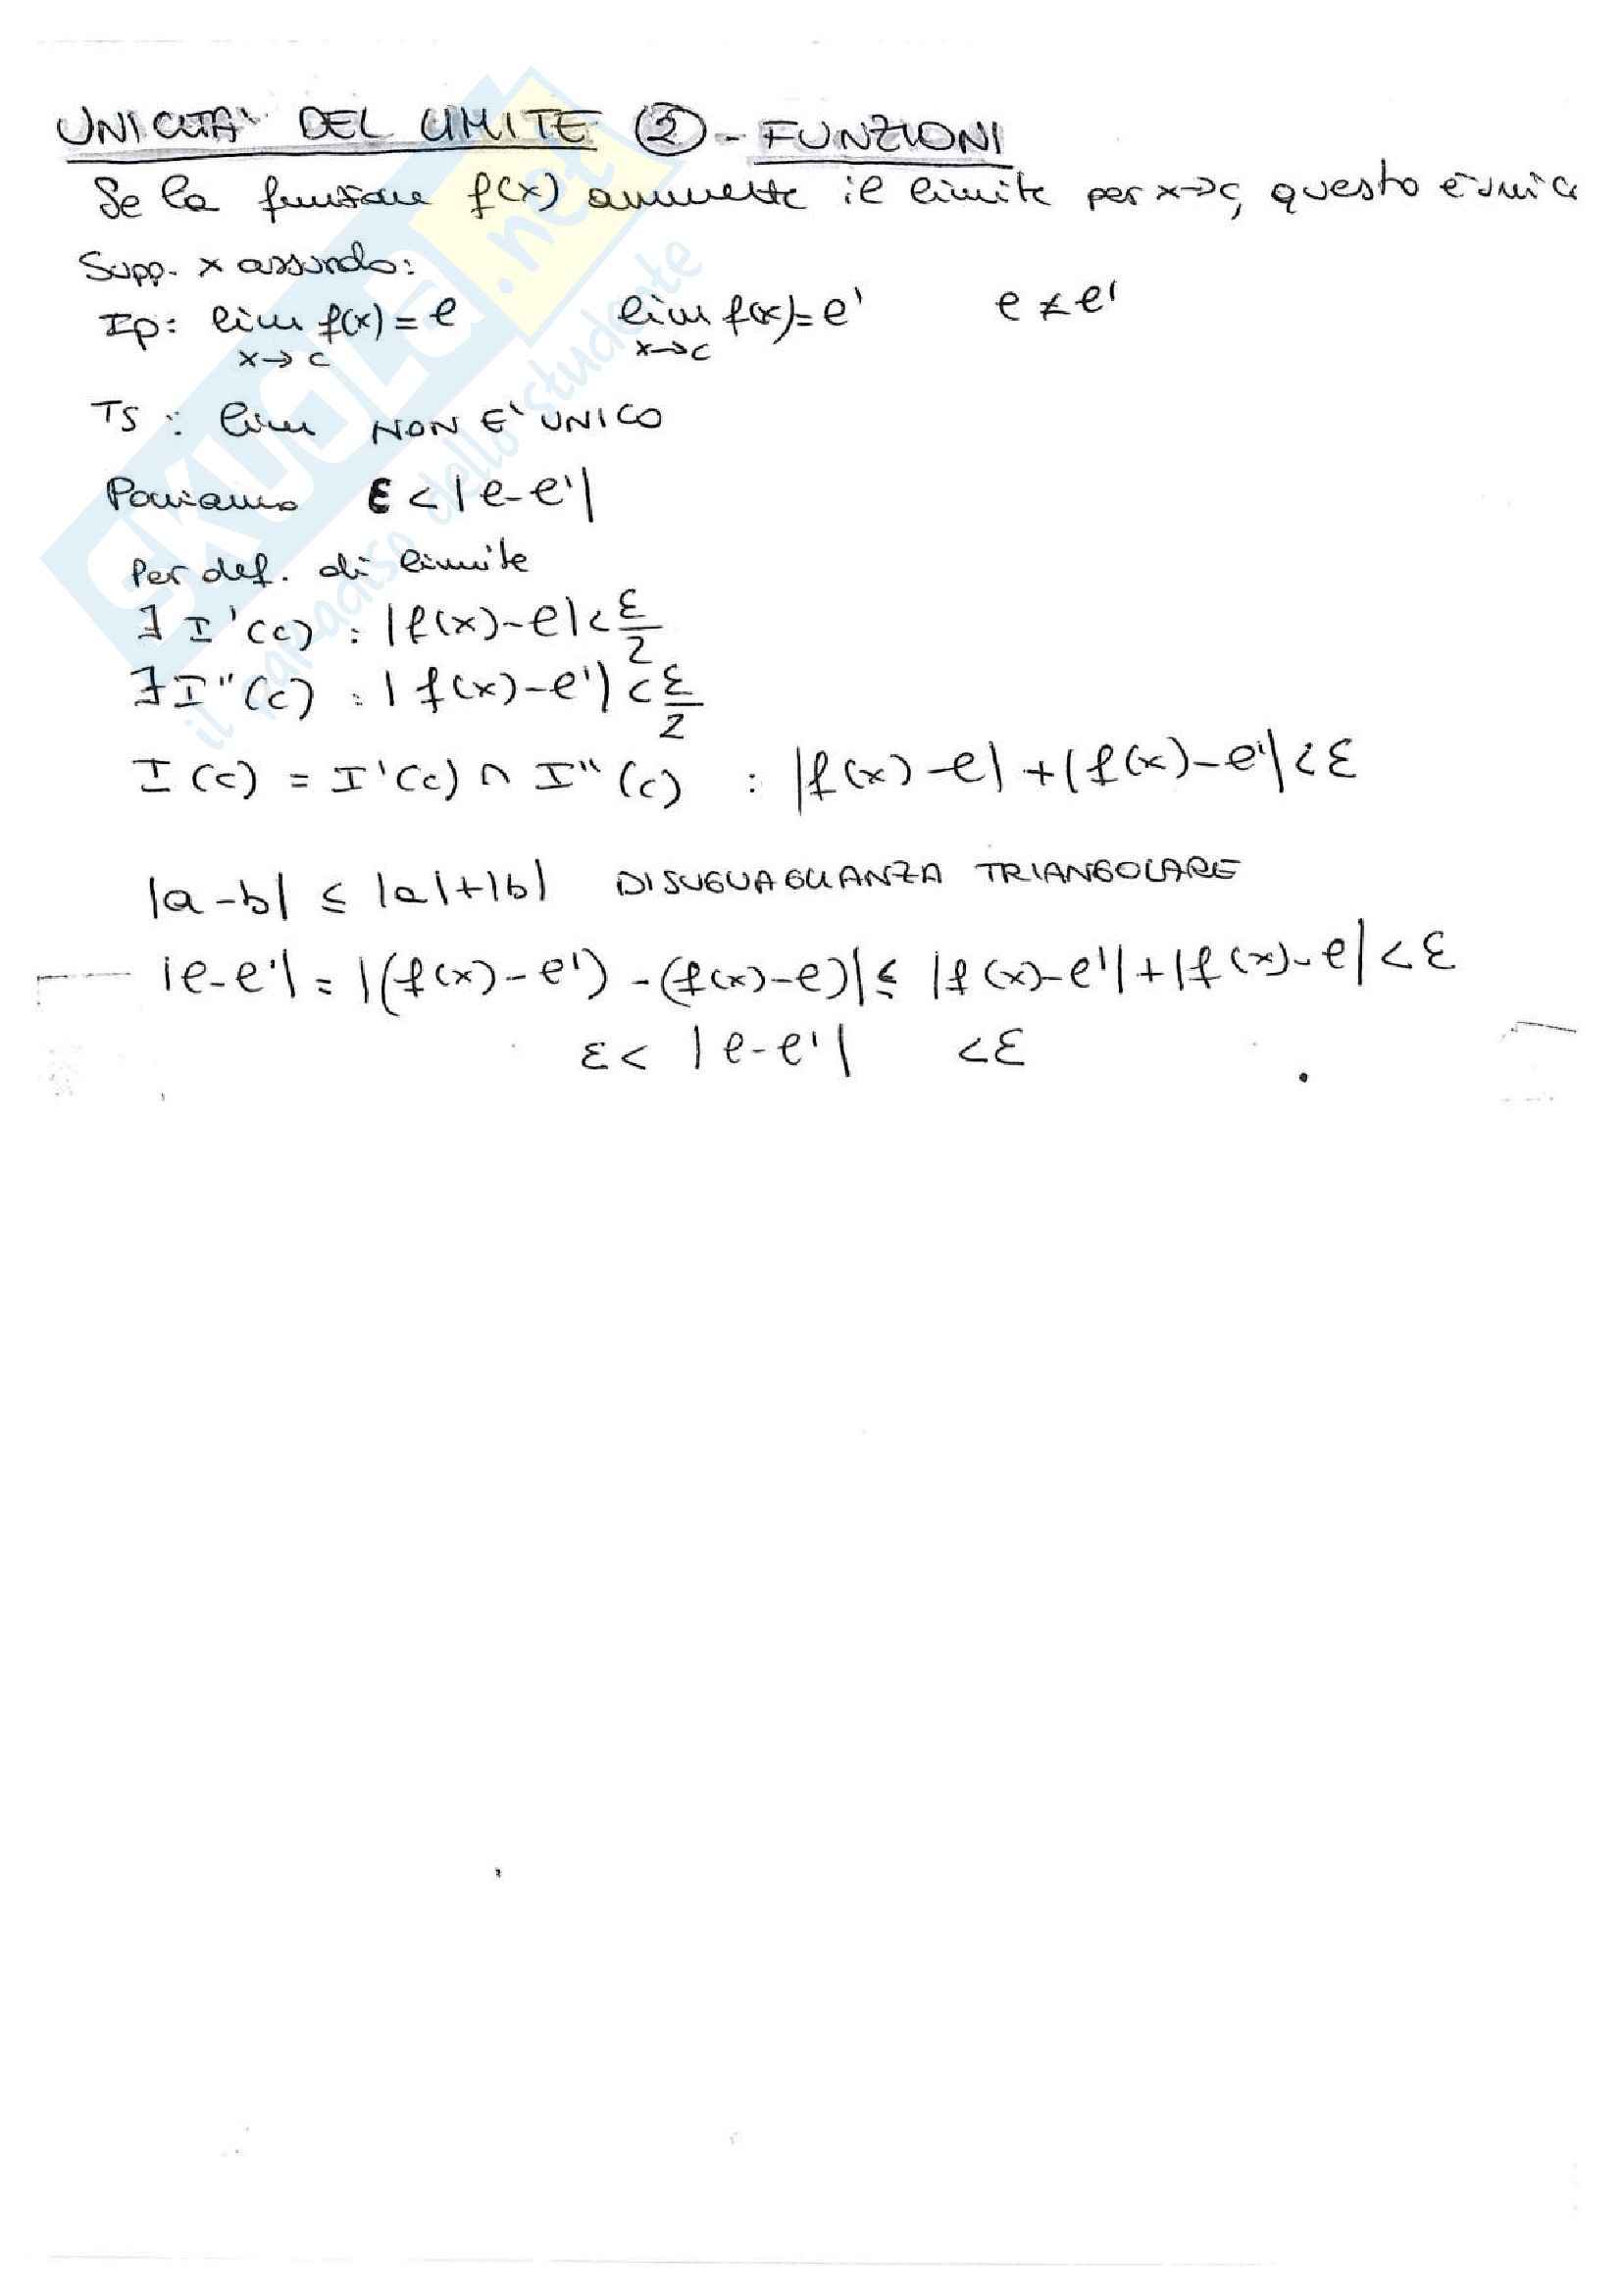 UNICITA' DEL LIMITE ② - FUNZIONI
Se la funzione f(x) ammette il limite per x→c, questo è unic
Supp. x assurdo:
Ip: lim f(x) = l lim f(x) = l' l ≠ l'
x→c x→c
TS: lim NON E' UNICO
Poniamo ε < |l-l'|
Per def. di limite
∃ I'(c) : |f(x)-l| < ε/2
∃ I''(c) : |f(x)-l'| < ε/2
I(c) = I'(c) ∩ I''(c) : |f(x)-l| + |f(x)-l'| < ε
|a-b| ≤ |a|+|b| DISUGUAGLIANZA TRIANGOLARE
|l-l'| = |(f(x)-l') - (f(x)-l)| ≤ |f(x)-l'| + |f(x)-l| < ε
ε < |l-l'| < ε
SKUOLA.net
il paradiso dello studente